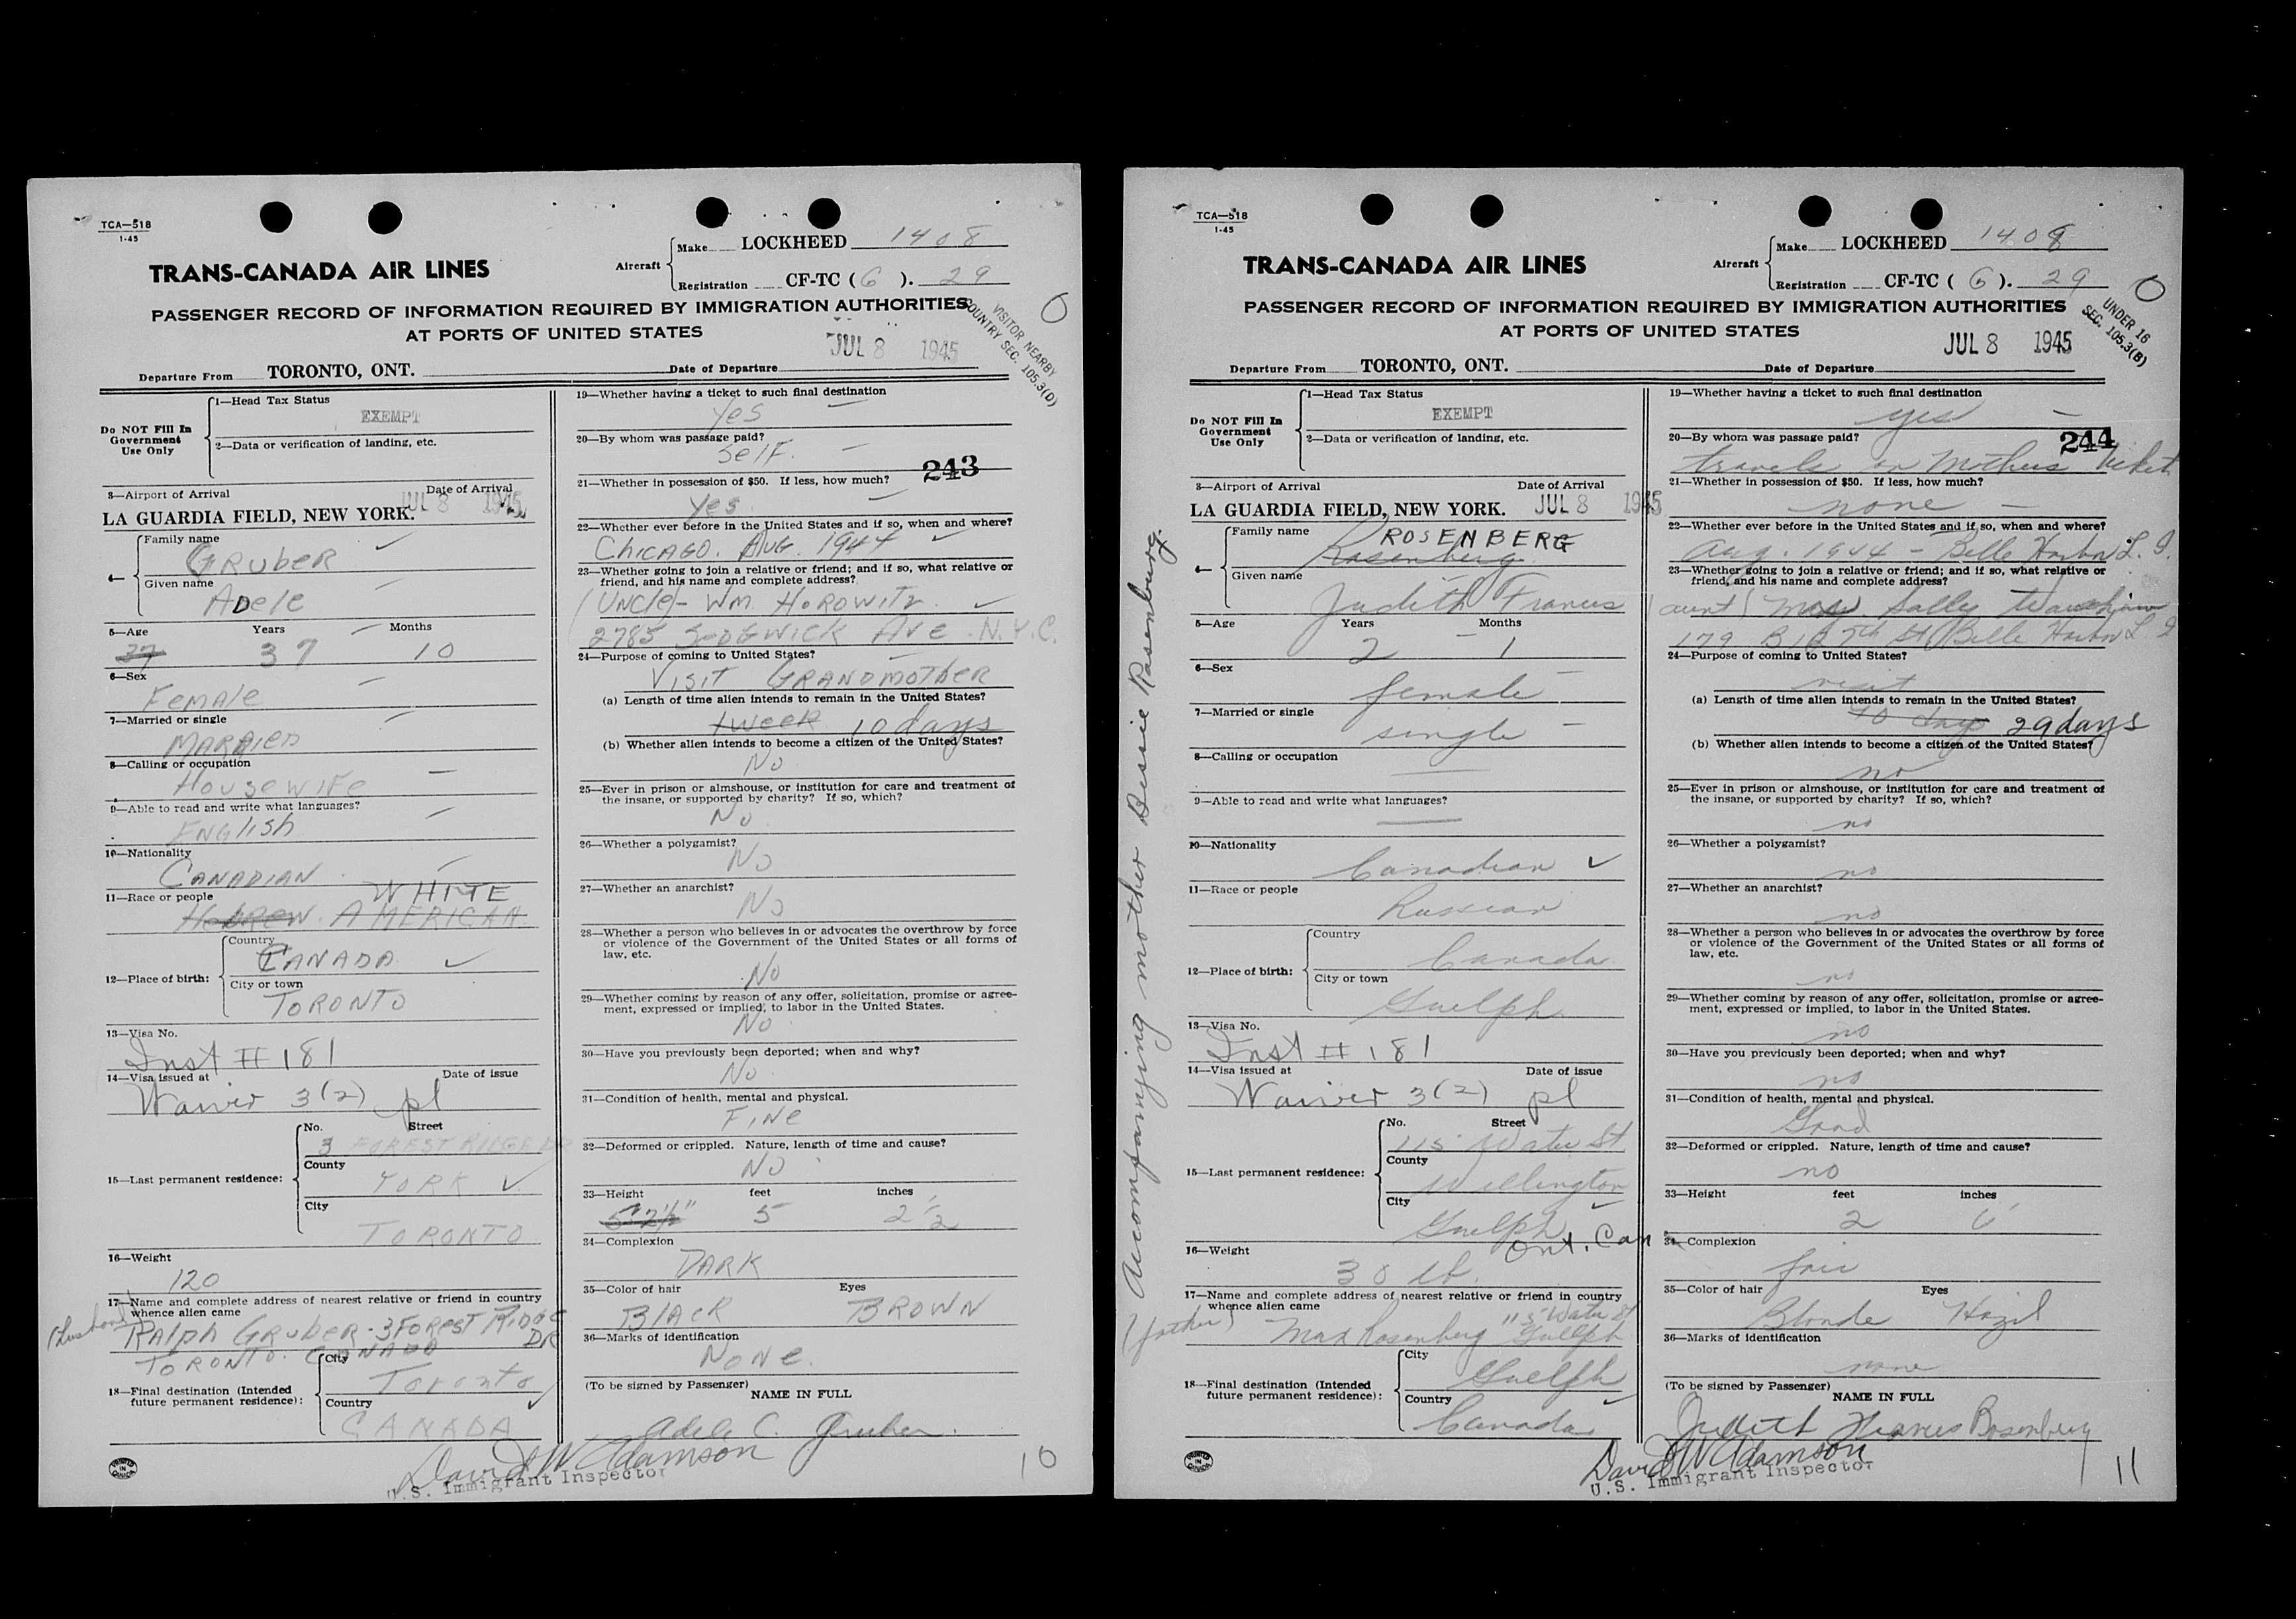 TCA—518
1-45
Aircraft
Make LOCKHEED 1408
Registration CF-TC ( 6 ). 29
TRANS-CANADA AIR LINES
PASSENGER RECORD OF INFORMATION REQUIRED BY IMMIGRATION AUTHORITIES
AT PORTS OF UNITED STATES
VISITOR NEARBY
COUNTRY SEC. 105.3(D)
0
JUL 8 1945
Departure From TORONTO, ONT. Date of Departure
Do NOT Fill In
Government
Use Only
1—Head Tax Status
EXEMPT
2—Data or verification of landing, etc.
3—Airport of Arrival Date of Arrival
LA GUARDIA FIELD, NEW YORK. JUL 8 1945
4—
Family name
GRUBER
Given name
ADELE
5—Age Years Months
37 37 10
6—Sex
FEMALE
7—Married or single
MARRIED
8—Calling or occupation
HOUSEWIFE
9—Able to read and write what languages?
ENGLISH
10—Nationality
CANADIAN
11—Race or people WHITE
HEBREW. AMERICAN
12—Place of birth:
Country
CANADA
City or town
TORONTO
13—Visa No.
Inst # 181
14—Visa issued at Date of issue
Waiver 3(2) pl
15—Last permanent residence:
No. Street
3 FOREST RIDGE DR
County
YORK
City
TORONTO
16—Weight
120
17—Name and complete address of nearest relative or friend in country
whence alien came
(husband) RALPH GRUBER - 3 FOREST RIDGE DR
TORONTO. CANADA
18—Final destination (Intended
future permanent residence):
City
Toronto
Country
CANADA
19—Whether having a ticket to such final destination
Yes
20—By whom was passage paid?
Self.
243
21—Whether in possession of $50. If less, how much?
Yes
22—Whether ever before in the United States and if so, when and where?
CHICAGO. AUG. 1944
23—Whether going to join a relative or friend; and if so, what relative or
friend, and his name and complete address?
(UNCLE) - WM. HOROWITZ
2785 SEDGWICK AVE. N.Y.C.
24—Purpose of coming to United States?
VISIT GRANDMOTHER
(a) Length of time alien intends to remain in the United States?
1 WEEK 10 days
(b) Whether alien intends to become a citizen of the United States?
No
25—Ever in prison or almshouse, or institution for care and treatment of
the insane, or supported by charity? If so, which?
No
26—Whether a polygamist?
No
27—Whether an anarchist?
No
28—Whether a person who believes in or advocates the overthrow by force
or violence of the Government of the United States or all forms of
law, etc.
No
29—Whether coming by reason of any offer, solicitation, promise or agree-
ment, expressed or implied, to labor in the United States.
No
30—Have you previously been deported; when and why?
No
31—Condition of health, mental and physical.
FINE
32—Deformed or crippled. Nature, length of time and cause?
NO
33—Height feet inches
5' 2½" 5 2 ½
34—Complexion
DARK
35—Color of hair Eyes
BLACK BROWN
36—Marks of identification
NONE.
(To be signed by Passenger)
NAME IN FULL
Adele C. Gruber.
David W Adamson
U.S. Immigrant Inspector
10
PRINTED IN CANADA
TCA—518
1-45
Aircraft
Make LOCKHEED 1408
Registration CF-TC ( 6 ). 29
TRANS-CANADA AIR LINES
PASSENGER RECORD OF INFORMATION REQUIRED BY IMMIGRATION AUTHORITIES
AT PORTS OF UNITED STATES
UNDER 16
SEC. 105.3(B)
0
JUL 8 1945
Departure From TORONTO, ONT. Date of Departure
Do NOT Fill In
Government
Use Only
1—Head Tax Status
EXEMPT
2—Data or verification of landing, etc.
3—Airport of Arrival Date of Arrival
LA GUARDIA FIELD, NEW YORK. JUL 8 1945
4—
Family name ROSENBERG
Rosenberg
Given name
Judith Frances
5—Age Years Months
2 1
6—Sex
female
7—Married or single
single
8—Calling or occupation
9—Able to read and write what languages?
10—Nationality
Canadian
11—Race or people
Russian
12—Place of birth:
Country
Canada
City or town
Guelph
13—Visa No.
Inst # 181
14—Visa issued at Date of issue
Waiver 3(2) pl
15—Last permanent residence:
No. Street
115 Water St
County
Wellington
City
Guelph
Ont. Can
16—Weight
30 lb.
17—Name and complete address of nearest relative or friend in country
whence alien came 115 Water St
(father) Max Rosenberg Guelph
18—Final destination (Intended
future permanent residence):
City
Guelph
Country
Canada
Accompanying mother Bessie Rosenburg.
19—Whether having a ticket to such final destination
yes
20—By whom was passage paid? 244
travels on Mothers ticket
21—Whether in possession of $50. If less, how much?
none
22—Whether ever before in the United States and if so, when and where?
Aug. 1944 - Belle Harbor L. I.
23—Whether going to join a relative or friend; and if so, what relative or
friend, and his name and complete address?
(aunt) Sally
179 B 137th St Belle Harbor L I
24—Purpose of coming to United States?
visit
(a) Length of time alien intends to remain in the United States?
10 days 29 days
(b) Whether alien intends to become a citizen of the United States?
no
25—Ever in prison or almshouse, or institution for care and treatment of
the insane, or supported by charity? If so, which?
no
26—Whether a polygamist?
no
27—Whether an anarchist?
no
28—Whether a person who believes in or advocates the overthrow by force
or violence of the Government of the United States or all forms of
law, etc.
no
29—Whether coming by reason of any offer, solicitation, promise or agree-
ment, expressed or implied, to labor in the United States.
no
30—Have you previously been deported; when and why?
no
31—Condition of health, mental and physical.
Good
32—Deformed or crippled. Nature, length of time and cause?
no
33—Height feet inches
2 6
34—Complexion
fair
35—Color of hair Eyes
Blonde Hazil
36—Marks of identification
none
(To be signed by Passenger)
NAME IN FULL
Judith Frances Rosenberg
David W Adamson
U.S. Immigrant Inspector
11
PRINTED IN CANADA